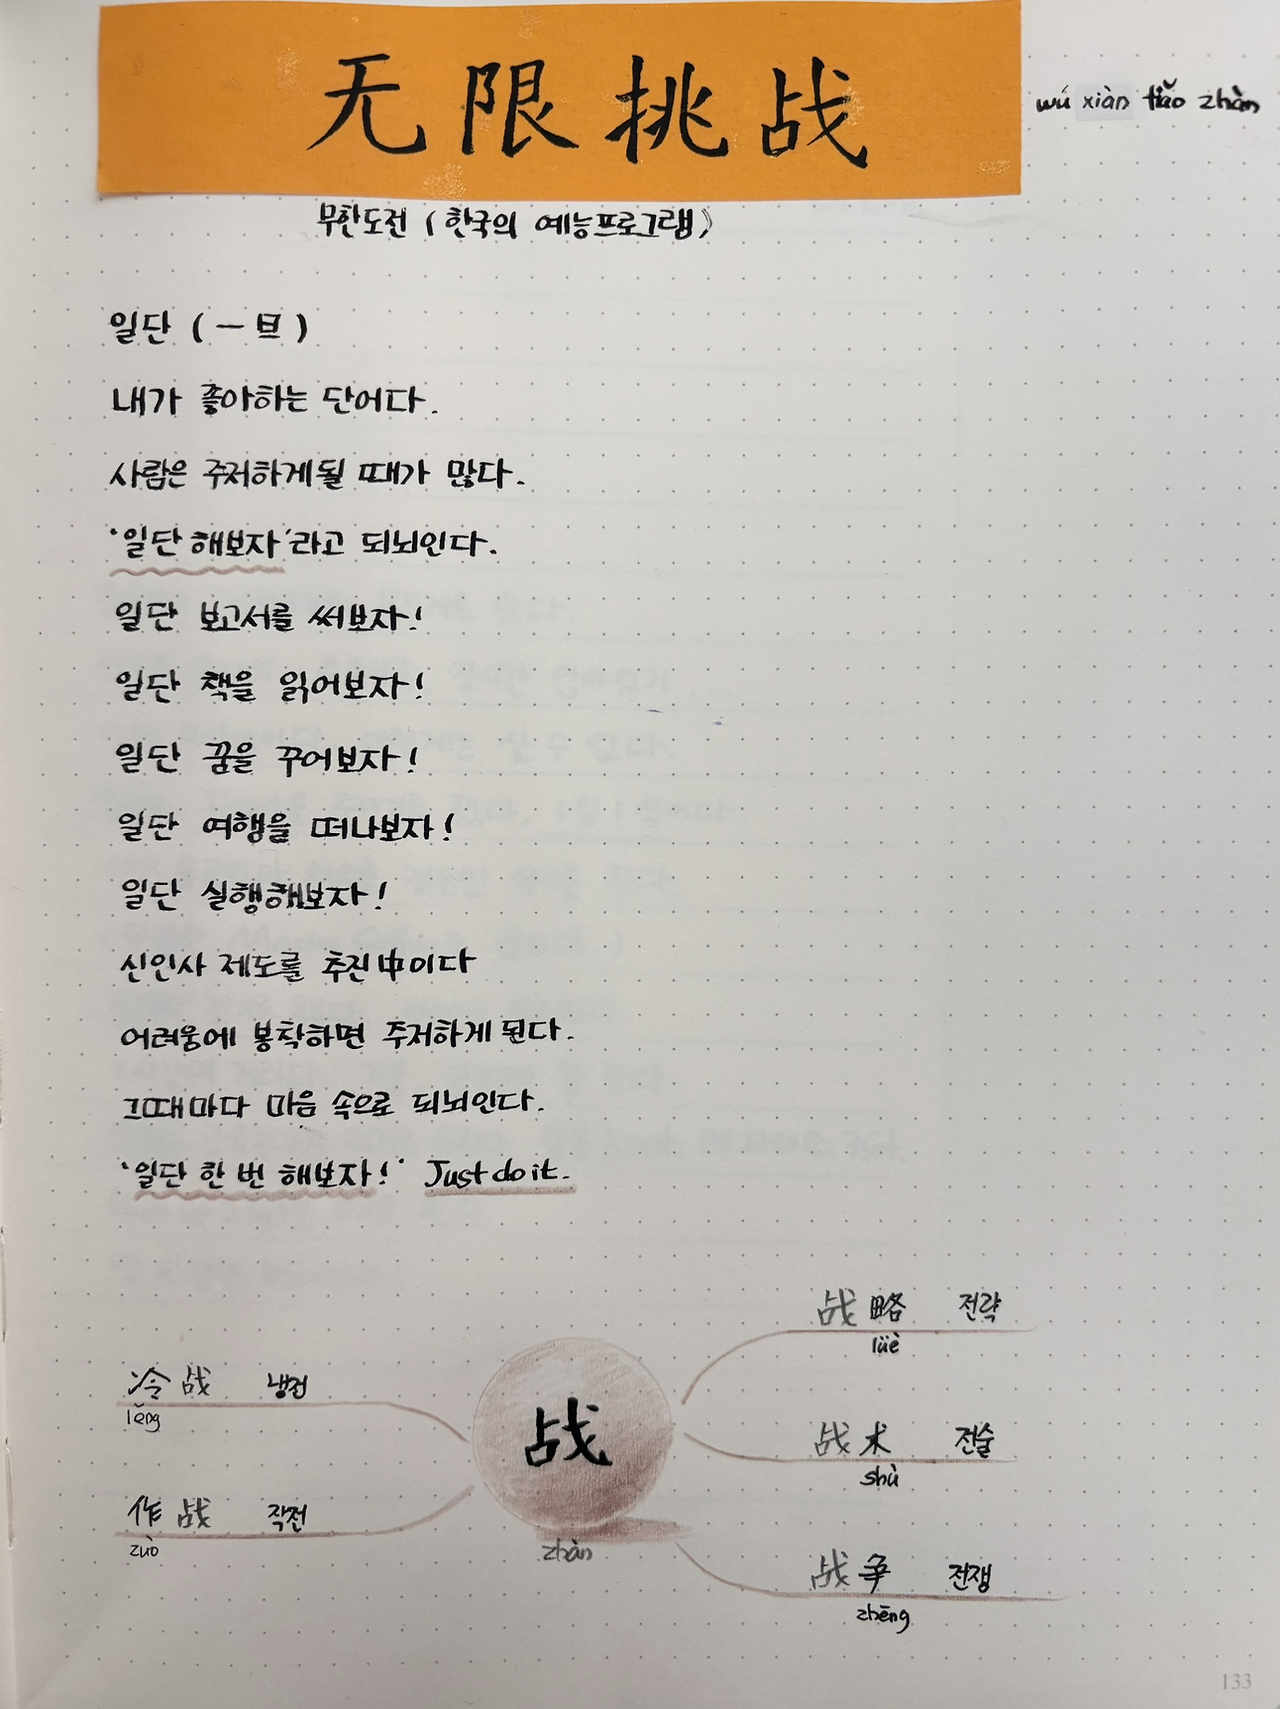 无限挑战
wú xiàn tiǎo zhàn
무한도전 (한국의 예능프로그램)
일단 (一旦)
내가 좋아하는 단어다.
사람은 주저하게될 때가 많다.
'일단 해보자'라고 되뇌인다.
일단 보고서를 써보자!
일단 책을 읽어보자!
일단 꿈을 꾸어보자!
일단 여행을 떠나보자!
일단 실행해보자!
신인사 제도를 추진中이다
어려움에 봉착하면 주저하게 된다.
그때마다 마음 속으로 되뇌인다.
'일단 한 번 해보자!' Just do it.
战略 전략
lüè
冷战 냉전
lěng
战
zhàn
战术 전술
shù
作战 작전
zuò
战争 전쟁
zhēng
133